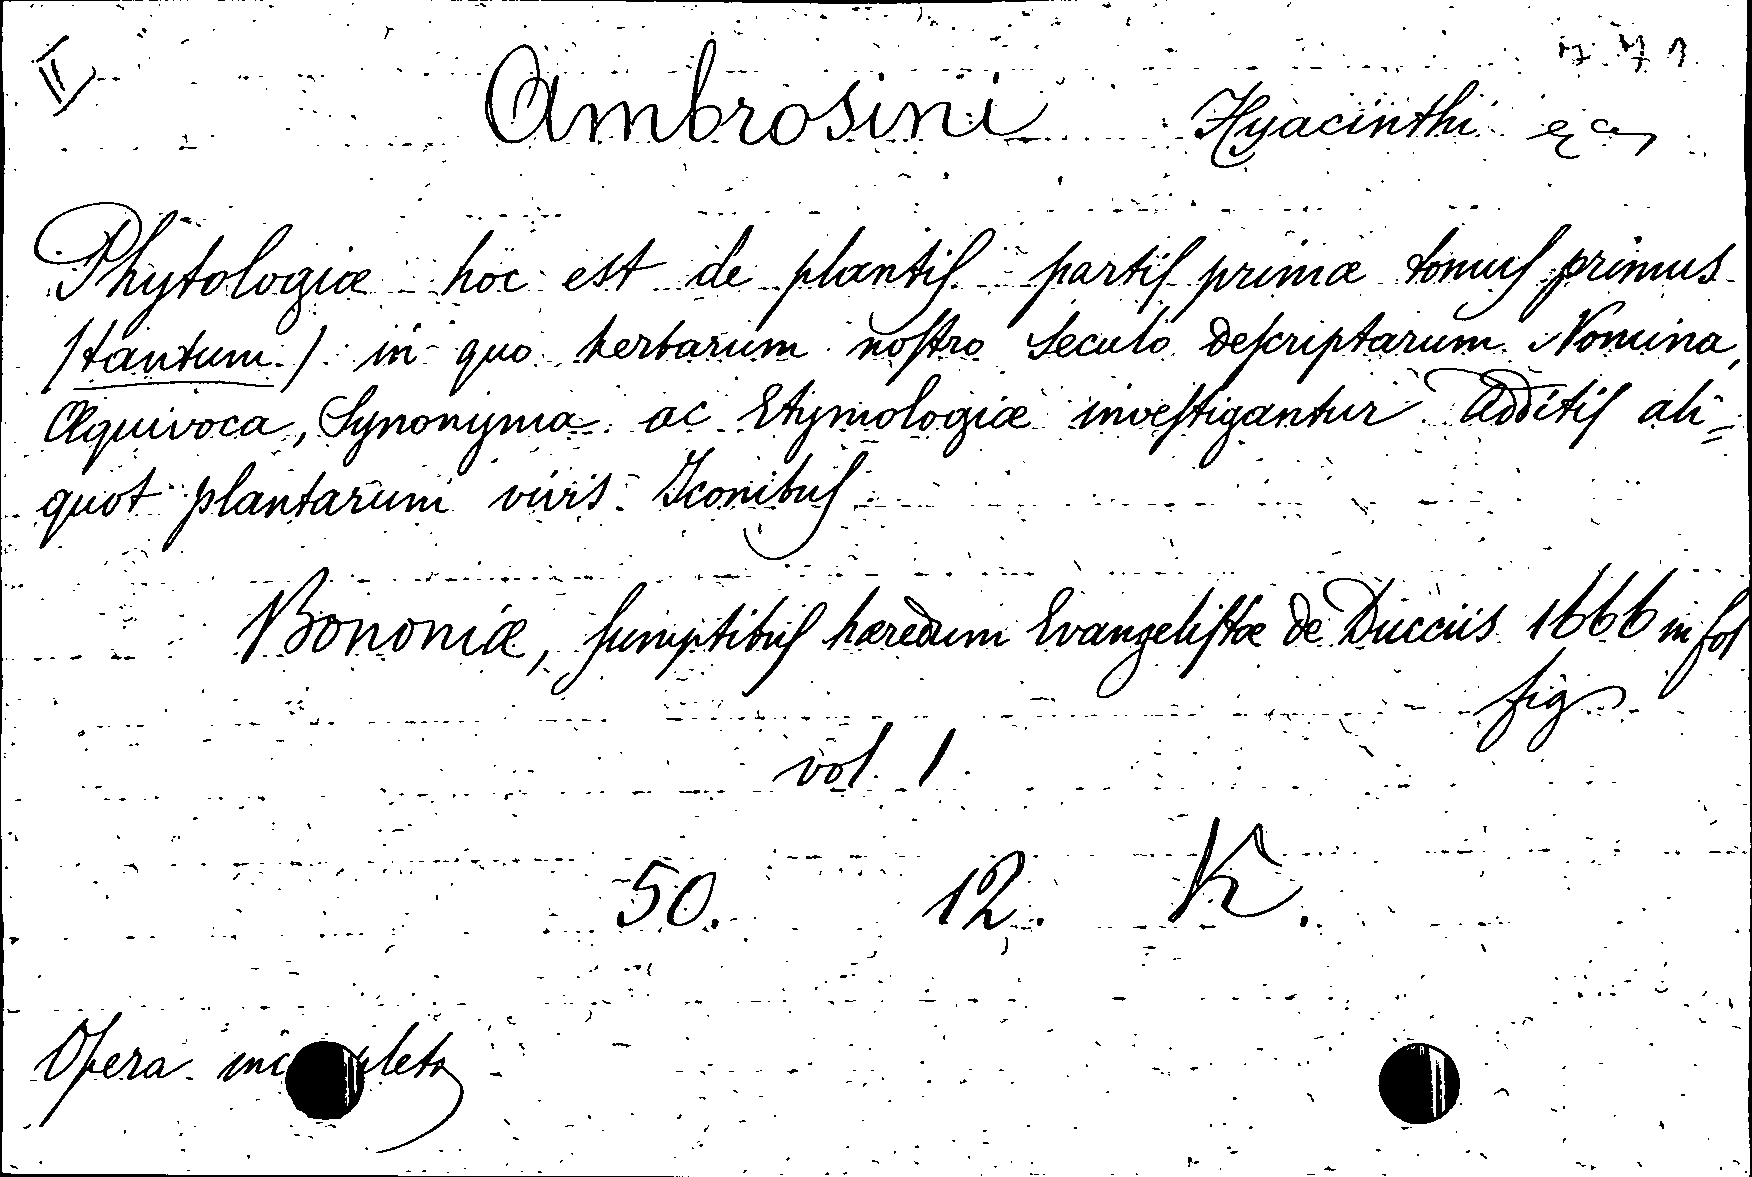 II
Ambrosini Hyacinthi
Phytologiæ hoc est de plantis partis primæ tomus primus
(tantum) in quo herbarum nostro seculo descriptarum Nomina,
Æquivoca, Synonyma ac Etymologiæ investigantur Additis ali=
quot plantarum vivis Iconibus
Bononiæ, sumptibus hæredum Evangelistæ de Ducciis 1666 in fol
fig.
vol. 1
50. 12. K.
Opera incompleta